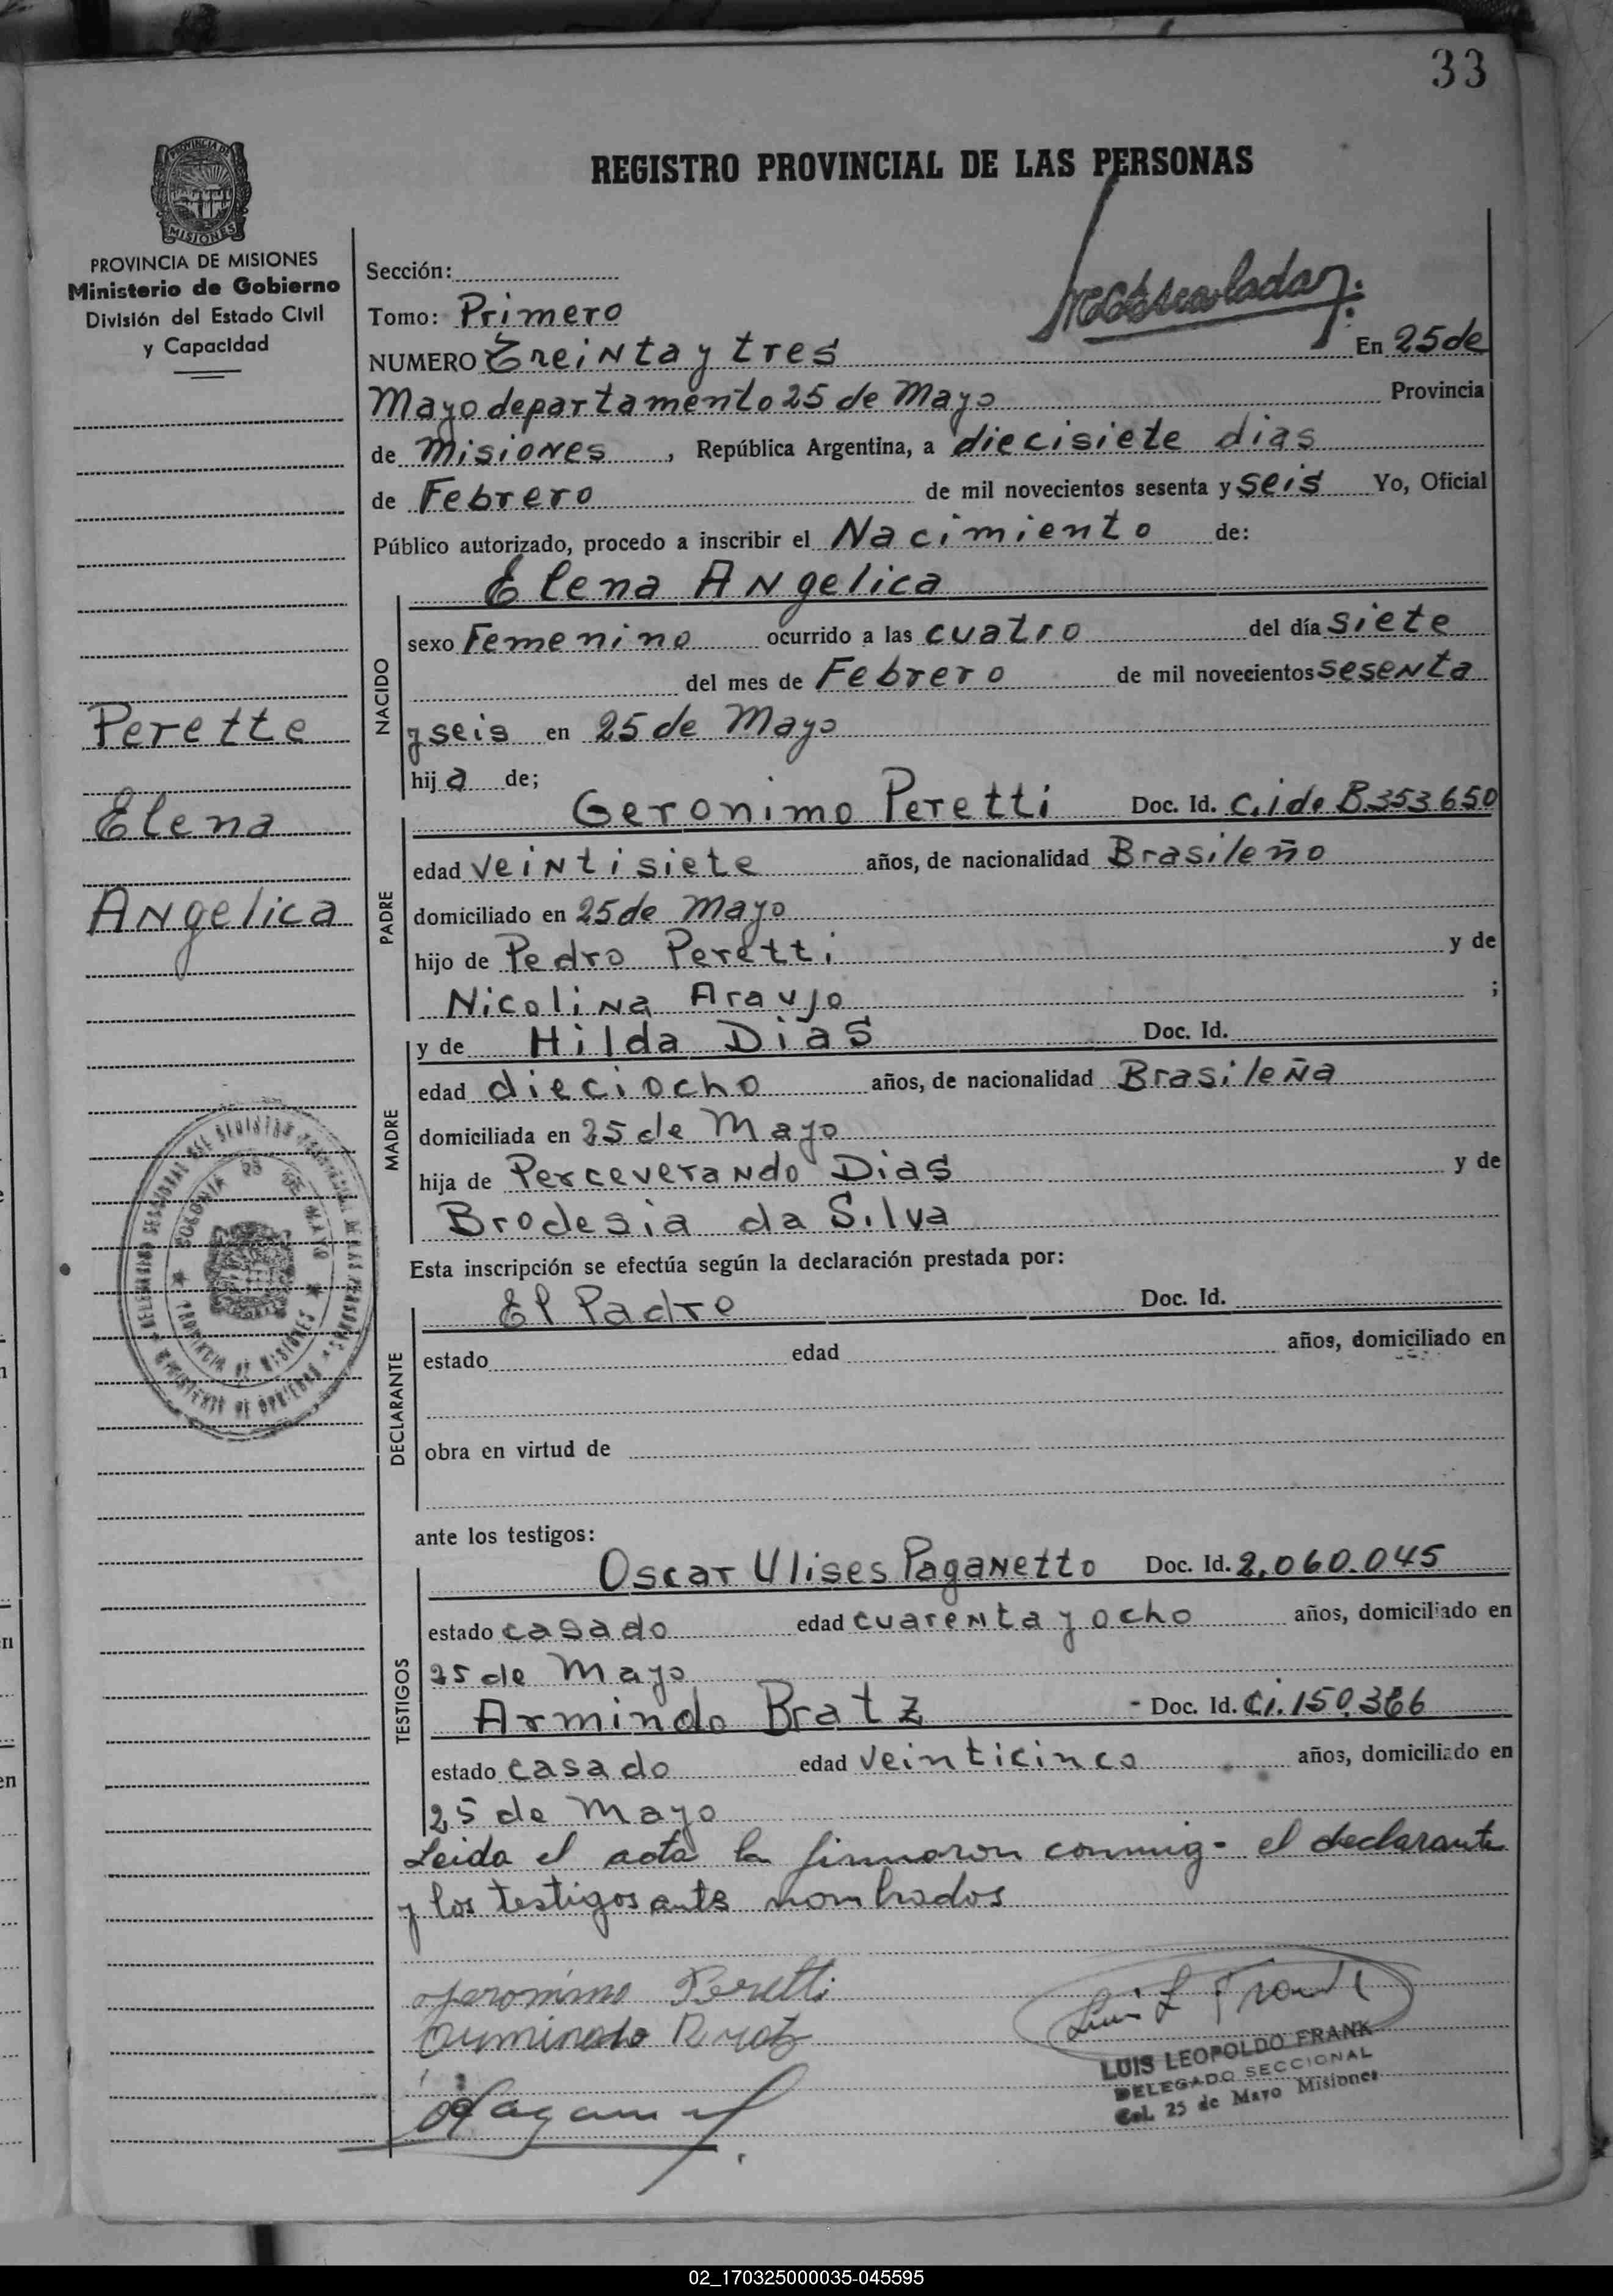 33
REGISTRO PROVINCIAL DE LAS PERSONAS
PROVINCIA DE MISIONES
PROVINCIA DE MISIONES
Ministerio de Gobierno
División del Estado Civil
y Capacidad
Perette
Elena
Angelica
Sección:
Tomo: Primero
NUMERO Treinta y tres En 25 de
Mayo departamento 25 de Mayo Provincia
de Misiones, República Argentina, a diecisiete dias
de Febrero de mil novecientos sesenta y seis Yo, Oficial
Público autorizado, procedo a inscribir el Nacimiento de:
NACIDO
Elena Angelica
sexo Femenino ocurrido a las cuatro del día siete
del mes de Febrero de mil novecientos sesenta
y seis en 25 de Mayo
hija de;
PADRE
Geronimo Peretti Doc. Id. C.i de B.353.650
edad veintisiete años, de nacionalidad Brasileño
domiciliado en 25 de Mayo
hijo de Pedro Peretti y de
Nicolina Araujo ;
MADRE
y de Hilda Dias Doc. Id.
edad dieciocho años, de nacionalidad Brasileña
domiciliada en 25 de Mayo
hija de Perceverando Dias y de
Brodesia da Silva
Esta inscripción se efectúa según la declaración prestada por:
DECLARANTE
El Padre Doc. Id.
estado edad años, domiciliado en
obra en virtud de
ante los testigos:
TESTIGOS
Oscar Ulises Paganetto Doc. Id. 2,060.045
estado casado edad cuarenta y ocho años, domiciliado en
25 de Mayo
Armindo Bratz - Doc. Id. Ci.150.366
estado casado edad veinticinco años, domiciliado en
25 de Mayo
Leida el acta la firmaron conmigo el declarante
y los testigos ants nombrados
Jeronimo Peretti
Armindo Bratz
Luis L Frank
LUIS LEOPOLDO FRANK
DELEGADO SECCIONAL
Col. 25 de Mayo Misiones
COLONIA 25 DE MAYO
PROVINCIA DE MISIONES
02_170325000035-045595